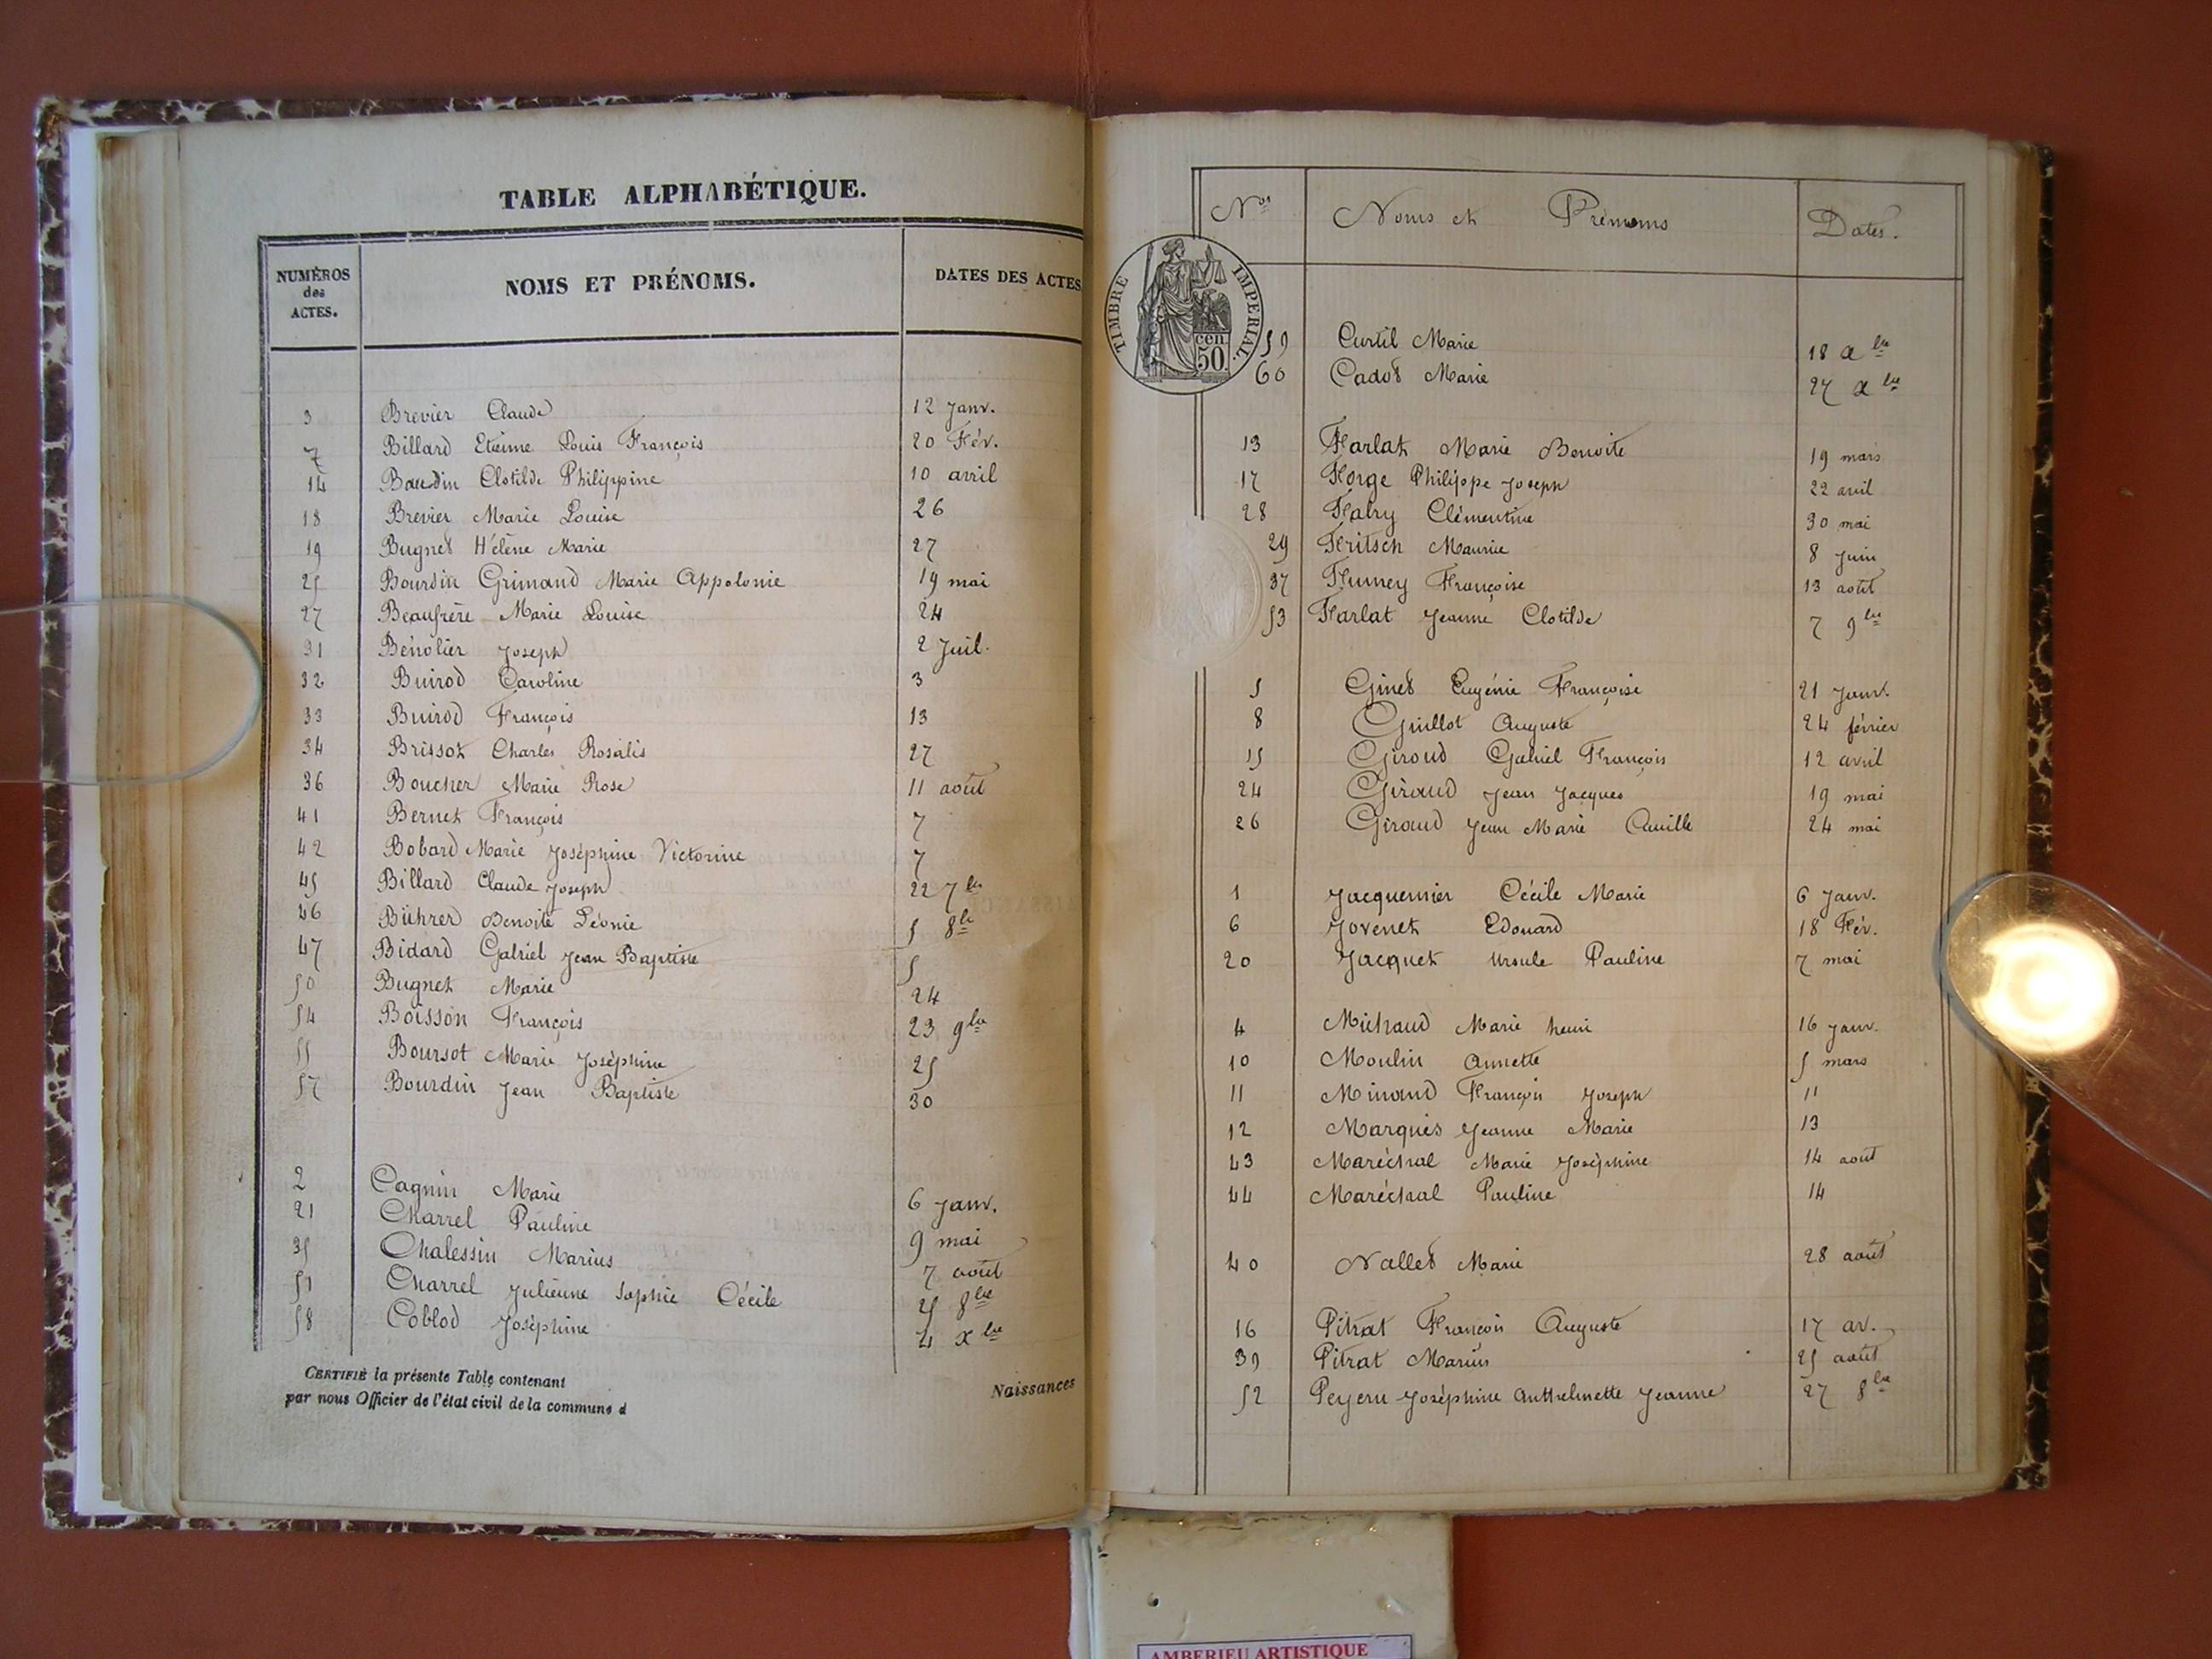 TABLE ALPHABÉTIQUE.
NUMÉROS des ACTES. NOMS ET PRÉNOMS. DATES DES ACTES
3 Brevier Claude 12 Janv.
7 Billard Etienne Louis François 20 Fév.
14 Baudin Clotilde Philippine 10 avril
18 Brevier Marie Louise 26
19 Bugnet Hélène Marie 27
25 Bourdin Grimaud Marie Appolonie 19 mai
27 Beaufrère Marie Louise 24
31 Bénolier Joseph 2 Juil.
32 Buirod Caroline 3
33 Buirod François 13
34 Brissot Charles Rosalis 27
36 Boucher Marie Rose 11 août
41 Bernet François 7
42 Bobard Marie Joséphine Victorine 7
45 Billard Claude Joseph 22 7bre
46 Bührer Benoite Léonie 5 8bre
47 Bidard Gabriel Jean Baptiste 5
50 Bugnet Marie 24
54 Boisson François 23 9bre
55 Boursot Marie Joséphine 25
57 Bourdin Jean Baptiste 30
2 Cagnin Marie 6 Janv.
21 Charrel Pauline 9 mai
35 Chalessin Marius 7 août
51 Charrel Julienne Sophie Cécile 25 8bre
58 Coblod Joséphine 4 xbre
CERTIFIÉ la présente Table contenant Naissances
par nous Officier de l'état civil de la commune d
Nos Noms et Prénoms Dates.
TIMBRE IMPERIAL.
cen.
50.
59 Curtil Marie 18 xbre
60 Cadot Marie 27 xbre
13 Farlat Marie Benoite 19 mars
17 Forge Philippe Joseph 22 avril
28 Falry Clémentine 30 mai
29 Fritsch Maurice 8 Juin
37 Fumey Françoise 13 août
53 Farlat Jeanne Clotilde 7 9bre
5 Ginet Eugénie Françoise 21 Janv.
8 Guillot Auguste 24 février
15 Giroud Gabriel François 12 avril
24 Giraud Jean Jacques 19 mai
26 Giraud Jean Marie 24 mai
1 Jacquemier Cécile Marie 6 Janv.
6 Jovenet Edouard 18 Fév.
20 Jacquet Ursule Pauline 7 mai
4 Michaud Marie henri 16 Janv.
10 Moulin Annette 5 mars
11 Minand François Joseph 11
12 Marquis Jeanne Marie 13
43 Maréchal Marie Joséphine 14 août
44 Maréchal Pauline 14
40 Nallet Marie 28 août
16 Pitrat François Auguste 17 av.
39 Pitrat Marius 25 août
52 Joséphine Anthelmette Jeanne 27 8bre
AMBERIEU ARTISTIQUE